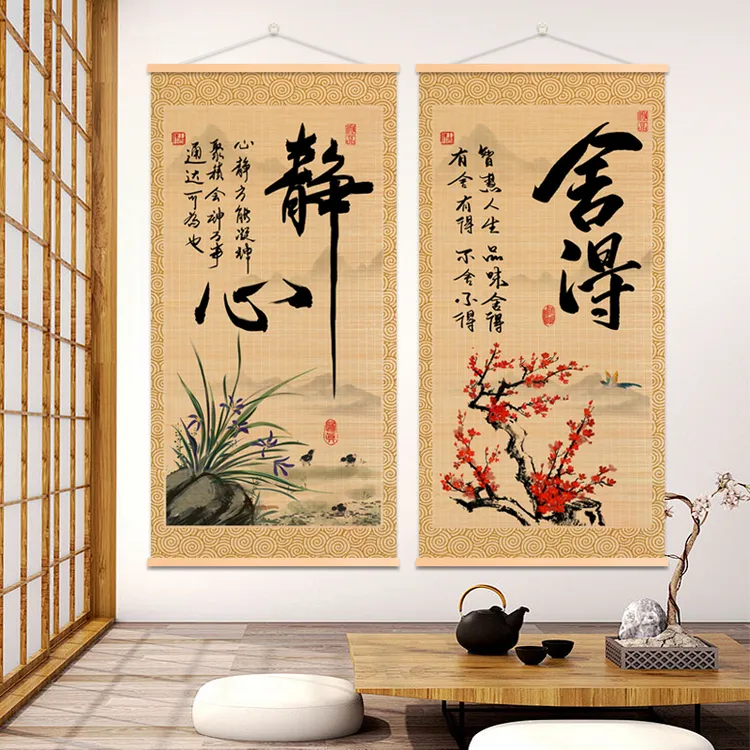 静心
心静方能凝神
聚精会神万事
通达可为也
舍得
智慧人生 品味舍得
有舍有得 不舍不得